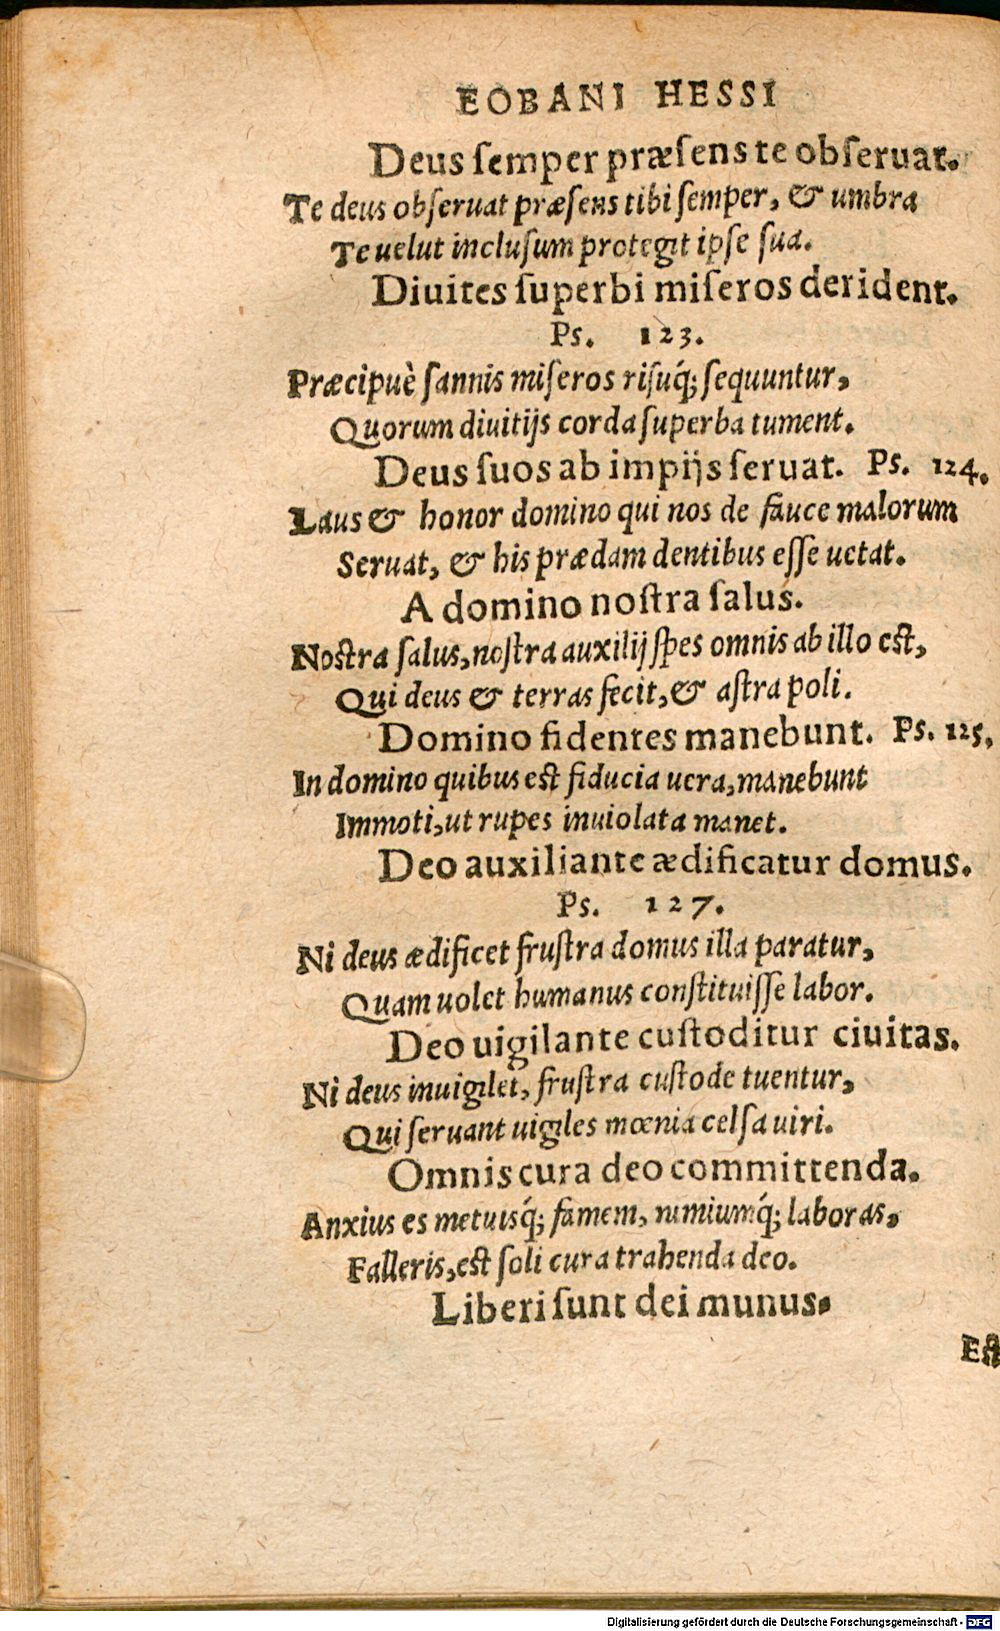 EOBANI HESSI
Deus ſemper præſens te obſeruat.
Te deus obſeruat præſens tibi ſemper, & umbra
Te uelut incluſum protegit ipſe ſua.
Diuites ſuperbi miſeros derident.
Ps. 123.
Præcipuè ſannis miſeros riſuq́; ſequuntur,
Quorum diuitijs corda ſuperba tument.
Deus ſuos ab impijs ſeruat. Ps. 124.
Laus & honor domino qui nos de fauce malorum
Seruat, & his prædam dentibus eſſe uetat.
A domino noſtra ſalus.
Noſtra ſalus, noſtra auxilij ſpes omnis ab illo eſt,
Qui deus & terras fecit, & aſtra poli.
Domino fidentes manebunt. Ps. 125.
In domino quibus eſt fiducia uera, manebunt
Immoti, ut rupes inuiolata manet.
Deo auxiliante ædificatur domus.
Ps. 127.
Ni deus ædificet fruſtra domus illa paratur,
Quam uolet humanus conſtituiſſe labor.
Deo uigilante cuſtoditur ciuitas.
Ni deus inuigilet, fruſtra cuſtode tuentur,
Qui ſeruant uigiles mœnia celſa uiri.
Omnis cura deo committenda.
Anxius es metuisq́; famem, nimiumq́; laboras,
Falleris, eſt ſoli cura trahenda deo.
Liberi ſunt dei munus.
Eſt
Digitalisierung gefördert durch die Deutsche Forschungsgemeinschaft - DFG